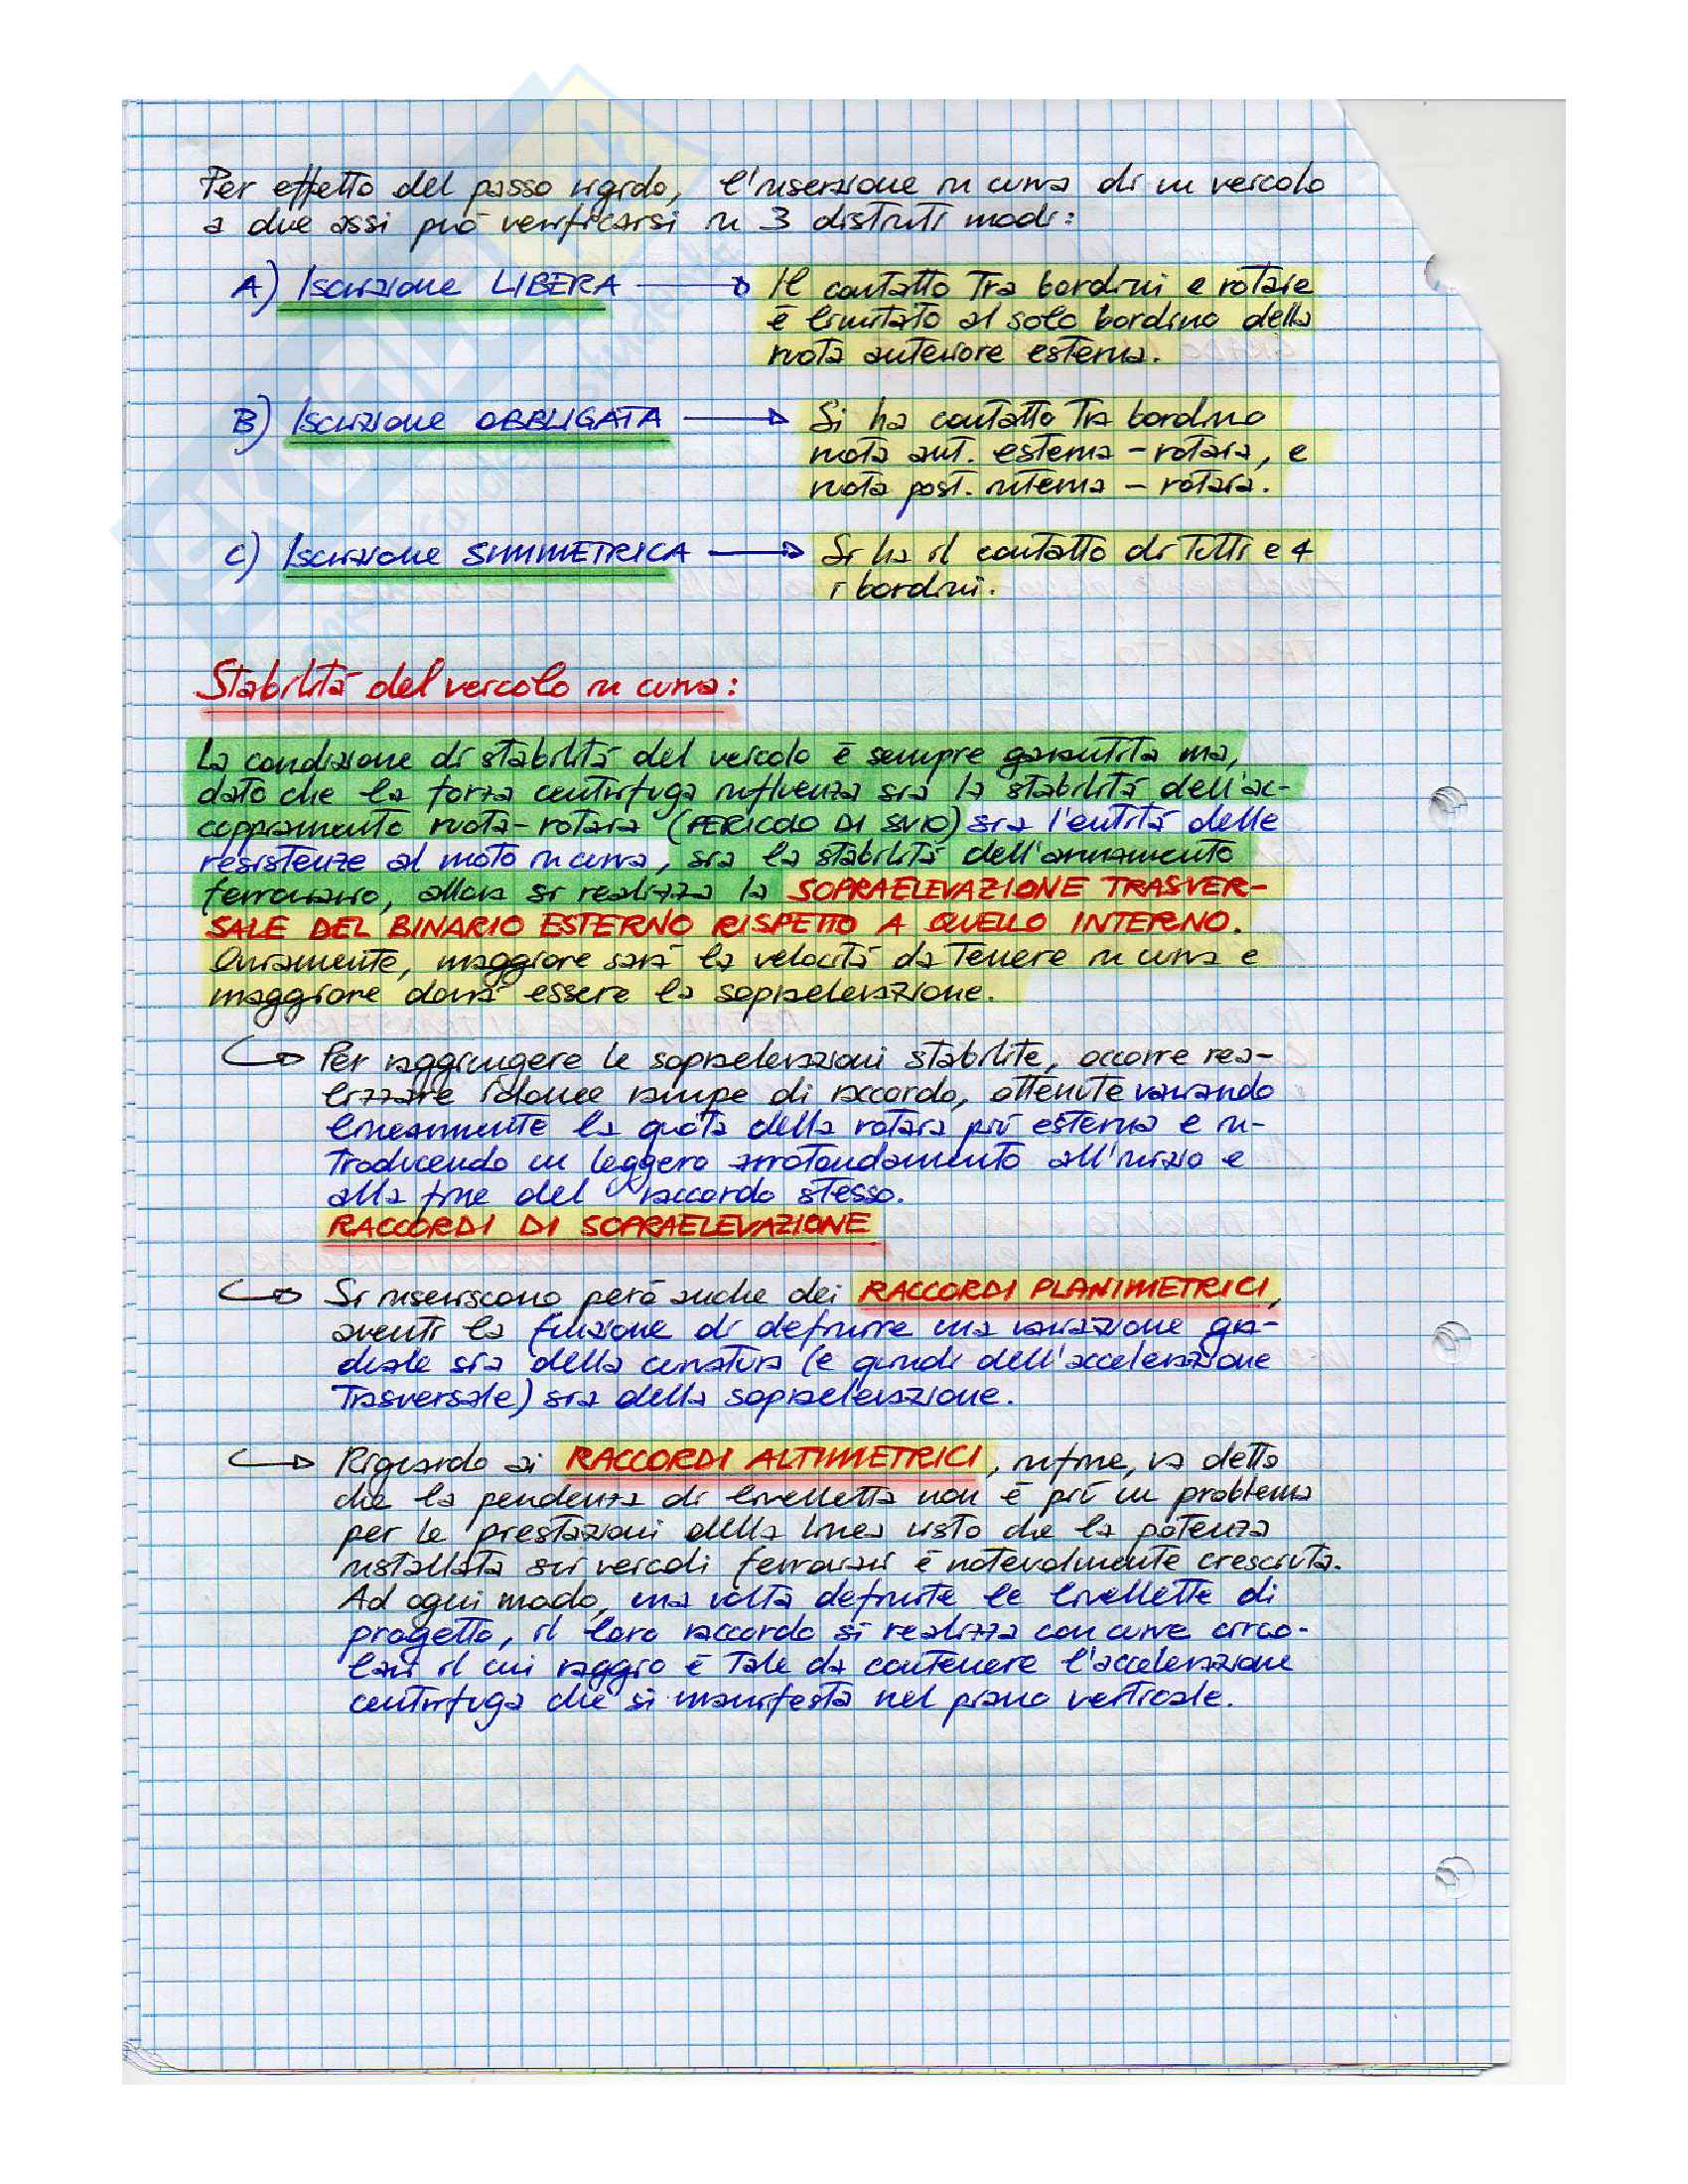 Per effetto del passo rigido, l'inserzione in curva di un veicolo
a due assi può verificarsi in 3 distinti modi:
A) Iscrizione LIBERA → Il contatto tra bordini e rotaie
è limitato al solo bordino della
ruota anteriore esterna.
B) Iscrizione OBBLIGATA → Si ha contatto tra bordino
ruota ant. esterna - rotaia, e
ruota post. interna - rotaia.
C) Iscrizione SIMMETRICA → Si ha il contatto di tutti e 4
i bordini.
Stabilità del veicolo in curva:
La condizione di stabilità del veicolo è sempre garantita ma,
dato che la forza centrifuga influenza sia la stabilità dell'ac-
coppiamento ruota-rotaia (PERICOLO DI SVIO) sia l'entità delle
resistenze al moto in curva, sia la stabilità dell'armamento
ferroviario, allora si realizza la SOPRAELEVAZIONE TRASVER-
SALE DEL BINARIO ESTERNO RISPETTO A QUELLO INTERNO.
Ovviamente, maggiore sarà la velocità da tenere in curva e
maggiore dovrà essere la sopraelevazione.
→ Per raggiungere le sopraelevazioni stabilite, occorre rea-
lizzare idonee rampe di raccordo, ottenute variando
linearmente la quota della rotaia più esterna e in-
troducendo un leggero arrotondamento all'inizio e
alla fine del raccordo stesso.
RACCORDI DI SOPRAELEVAZIONE
→ Si inseriscono però anche dei RACCORDI PLANIMETRICI,
aventi la funzione di definire una variazione gra-
duale sia della curvatura (e quindi dell'accelerazione
trasversale) sia della sopraelevazione.
→ Riguardo ai RACCORDI ALTIMETRICI, infine, va detto
che la pendenza di livelletta non è più un problema
per le prestazioni della linea visto che la potenza
installata sui veicoli ferroviari è notevolmente cresciuta.
Ad ogni modo, una volta definite le livellette di
progetto, il loro raccordo si realizza con curve circo-
lari il cui raggio è tale da contenere l'accelerazione
centrifuga che si manifesta nel piano verticale.